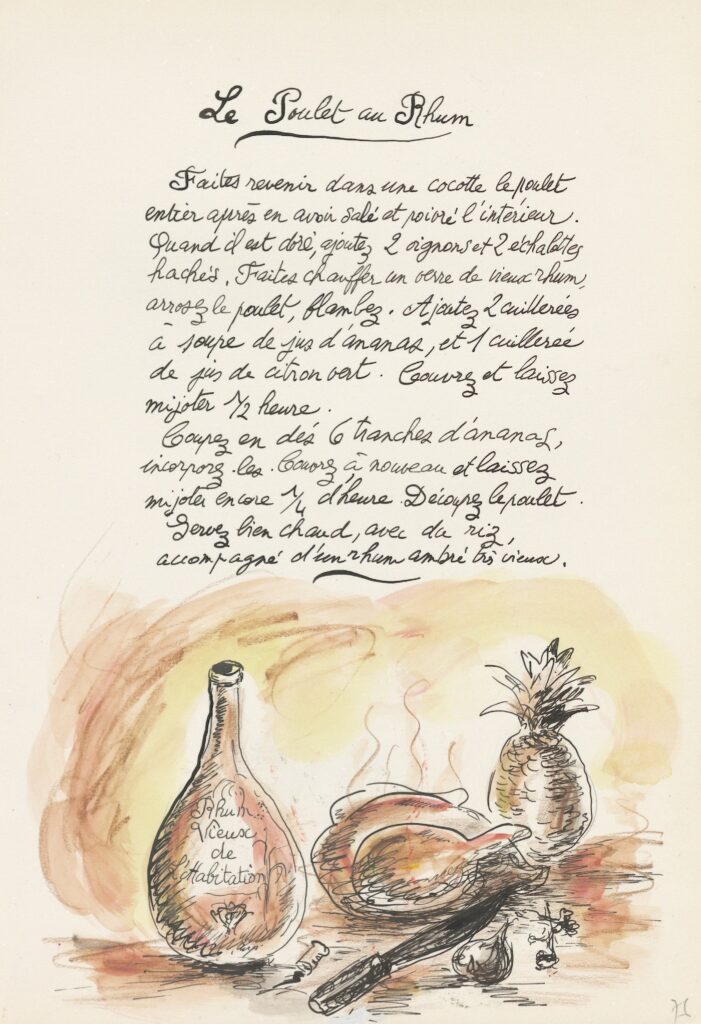 Le Poulet au Rhum
Faites revenir dans une cocotte le poulet
entier après en avoir salé et poivré l'intérieur.
Quand il est doré, ajoutez 2 oignons et 2 échalotes
hachés. Faites chauffer un verre de vieux rhum,
arrosez le poulet, flambez. Ajoutez 2 cuillerées
à soupe de jus d'ananas, et 1 cuillereé
de jus de citron vert. Couvrez et laissez
mijoter 1/2 heure.
Coupez en dés 6 tranches d'ananas,
incorporez-les. Couvrez à nouveau et laissez
mijoter encore 1/4 d'heure. Découpez le poulet.
Servez bien chaud, avec du riz,
accompagné d'un rhum ambré très vieux.
Rhum
Vieux
de
L'Habitation